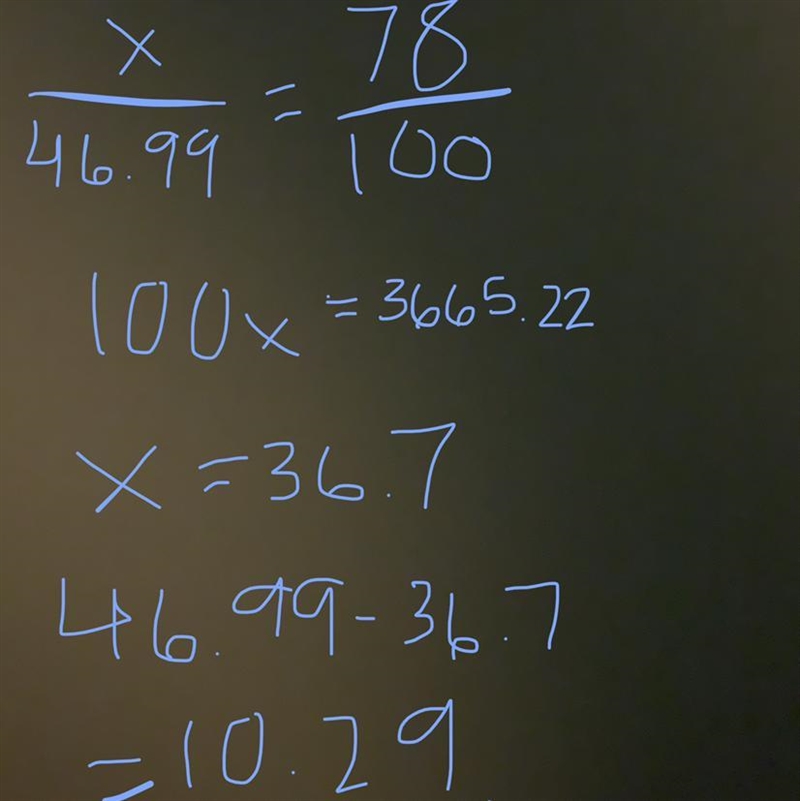 x/46.99 = 78/100
100x = 3665.22
x = 36.7
46.99 - 36.7
= 10.29